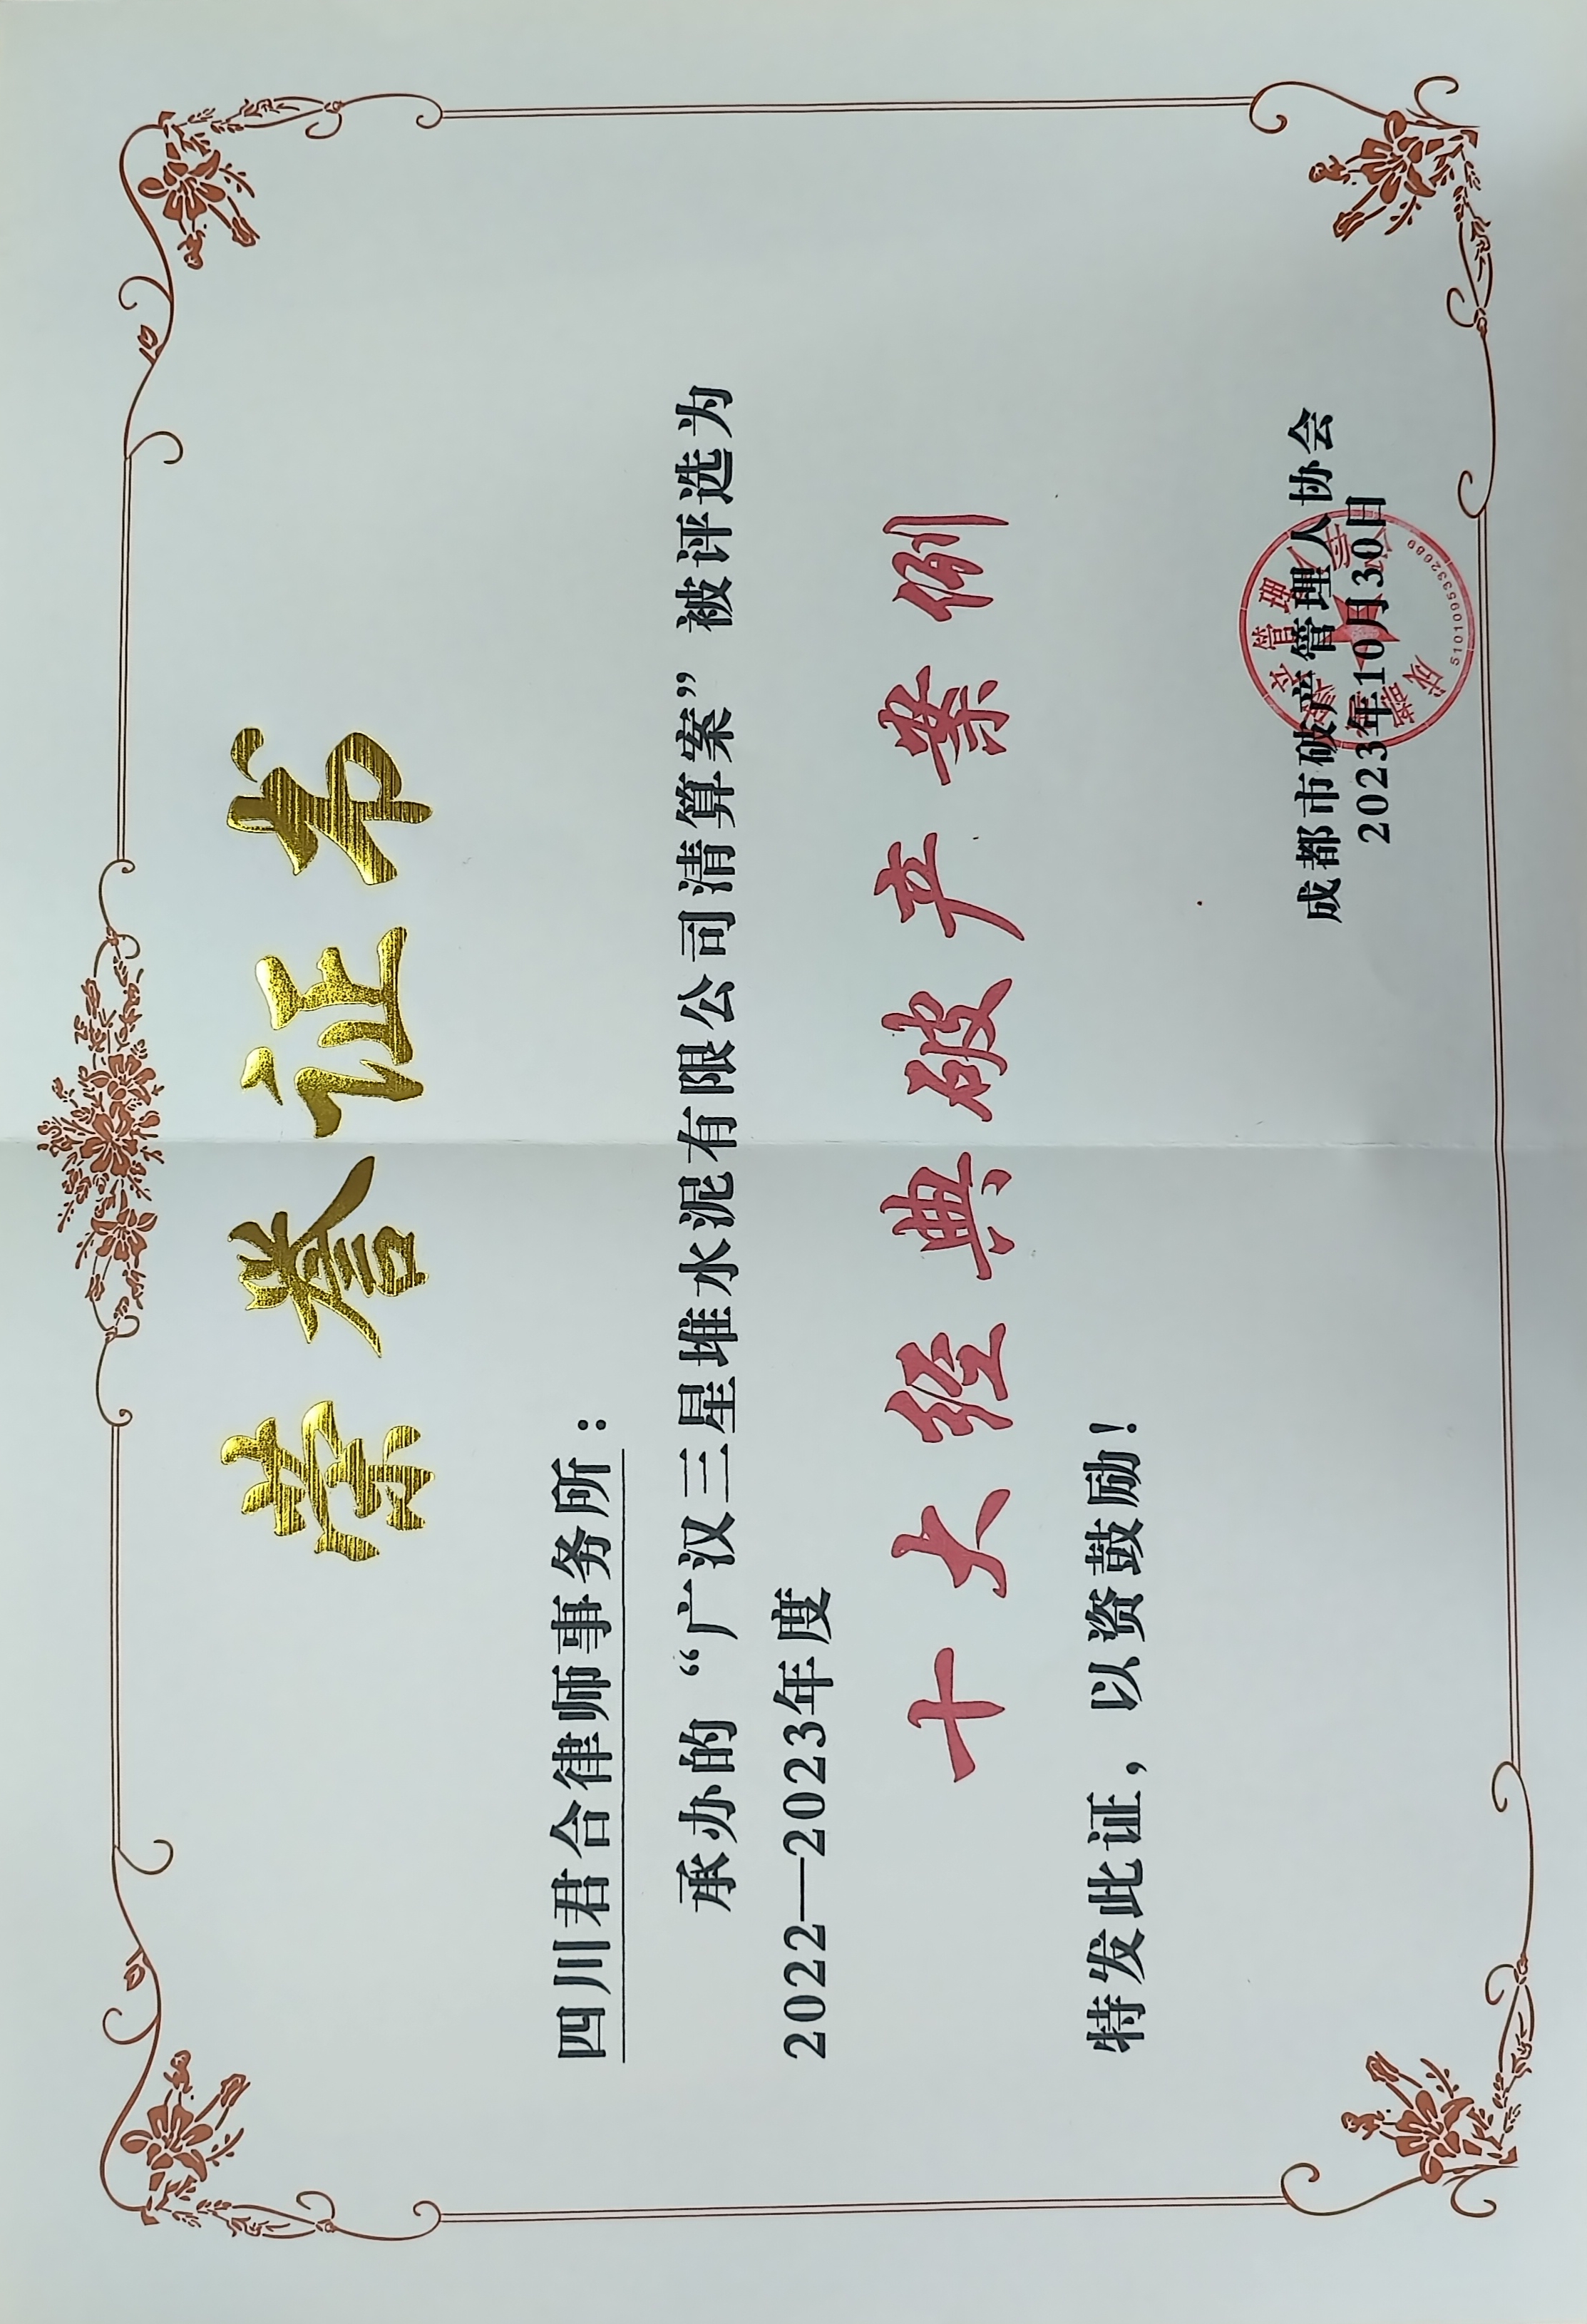 荣誉证书
四川君合律师事务所：
承办的“广汉三星堆水泥有限公司清算案”被评选为
2022—2023年度
十大经典破产案例
特发此证，以资鼓励！
成都市破产管理人协会
2023年10月30日
成都市破产管理人协会